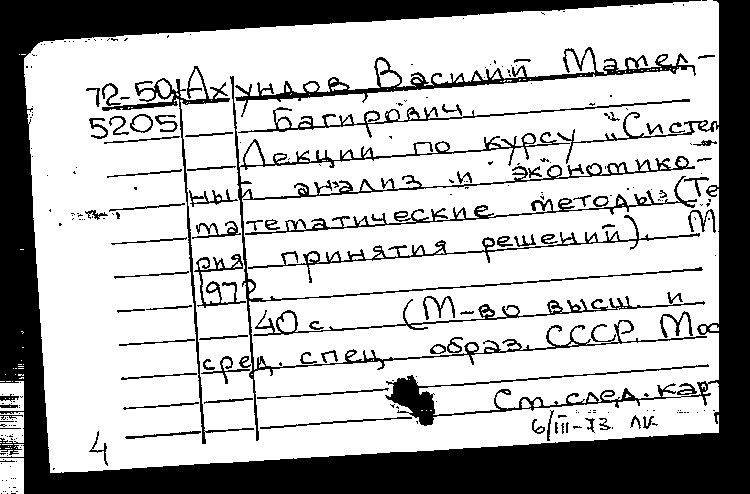 72-50 Ахундов, Василий Мамед-
5205 Багирович.
Лекции по курсу "Систем
ный анализ и экономико-
математические методы" (Те
рия принятия решений). М
1972.
40 с. (М-во высш. и
сред. спец. образ. СССР. Мос
См. след. кар
4 6/III-73 ЛК